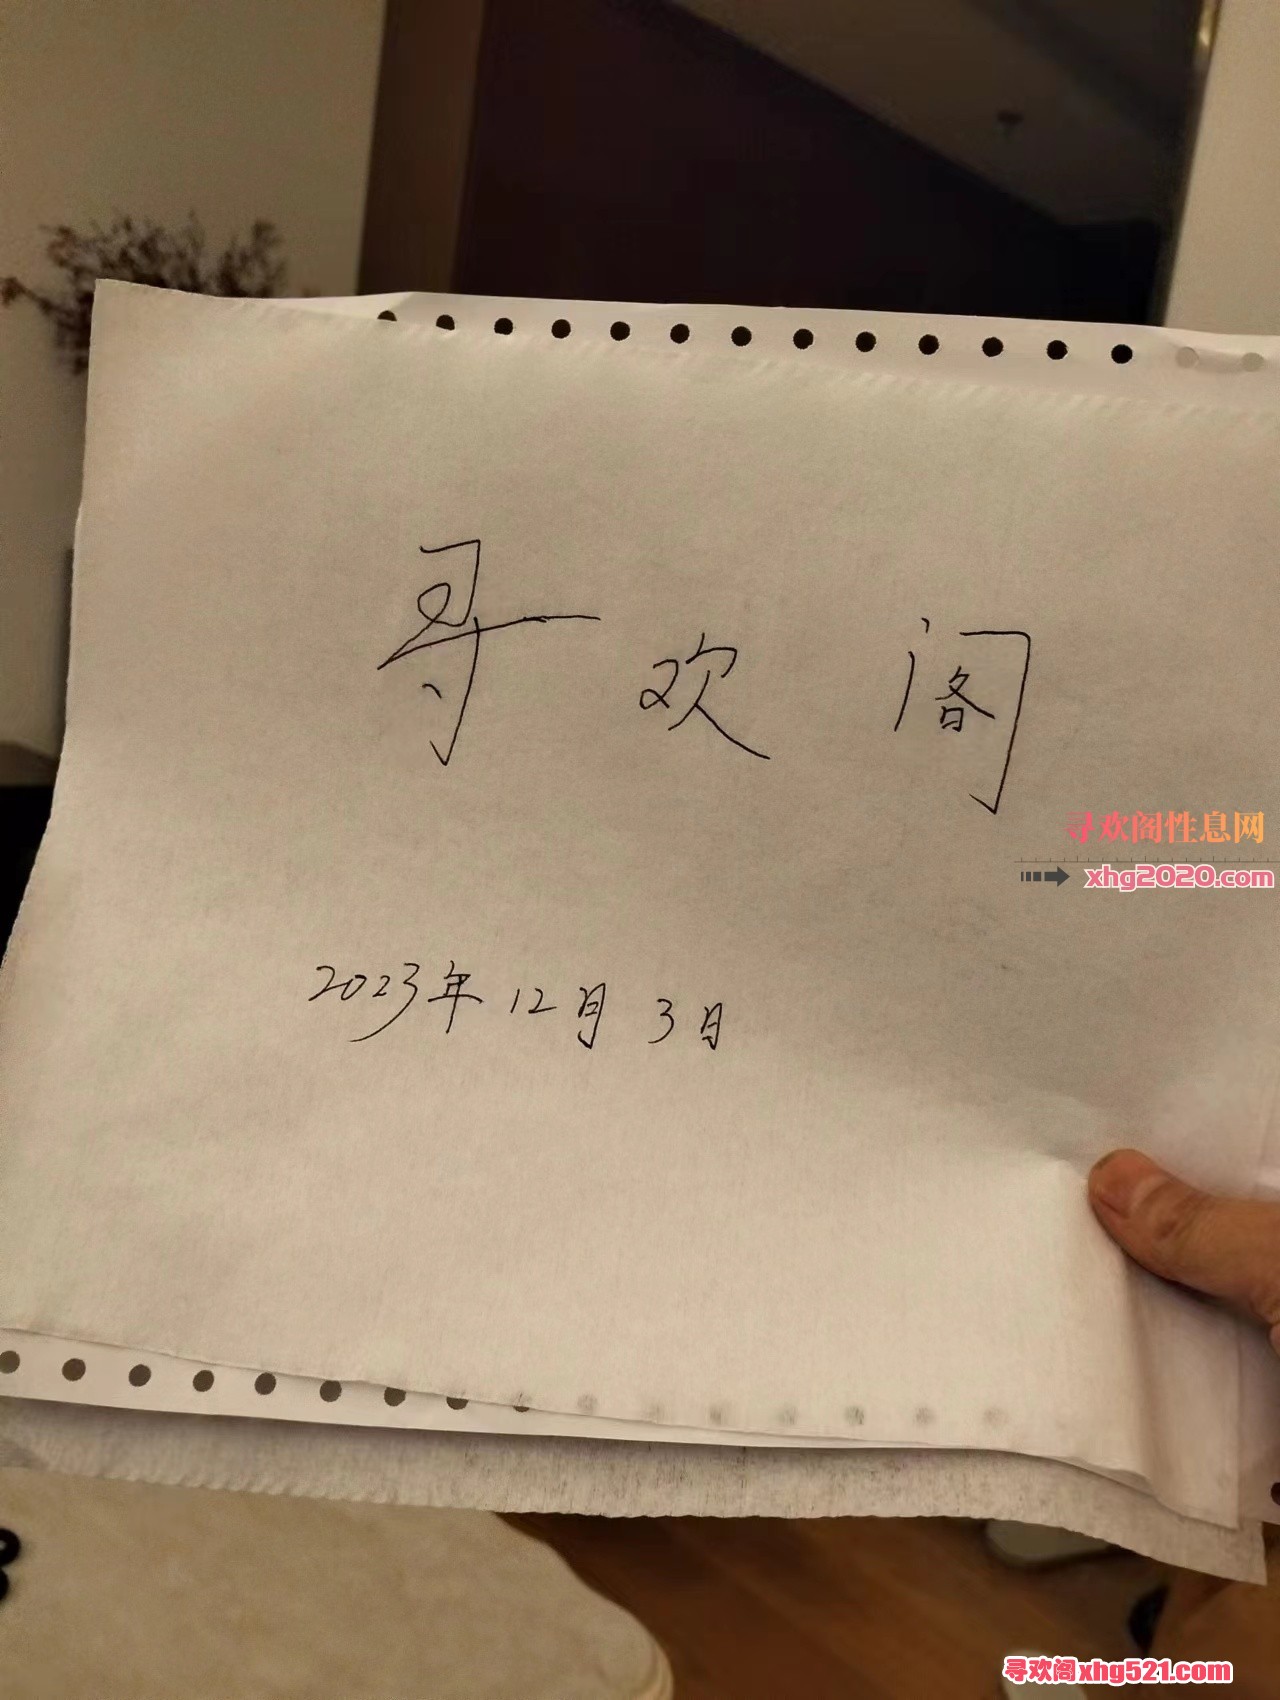 寻欢阁
寻欢阁性息网
xhg2020.com
2023年12月3日
寻欢阁xhg521.com